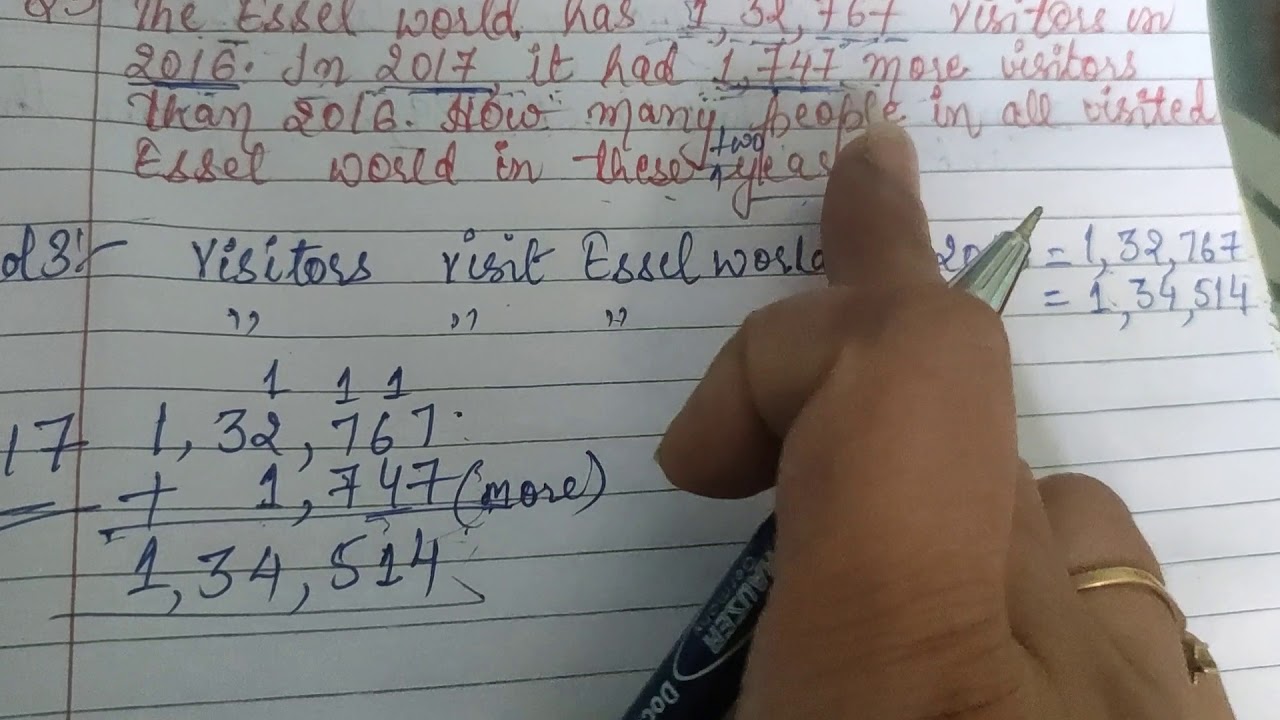 The Essel world has 1,32,767 visitors in
2016. In 2017 it had 1,747 more visitors
than 2016. How many people in all visited
two
Essel world in these
Visitors visit Essel world = 1,32,767
,, ,, ,, = 1,34,514
1 1 1
17 1,32,767
+ 1,747 (more)
1,34,514